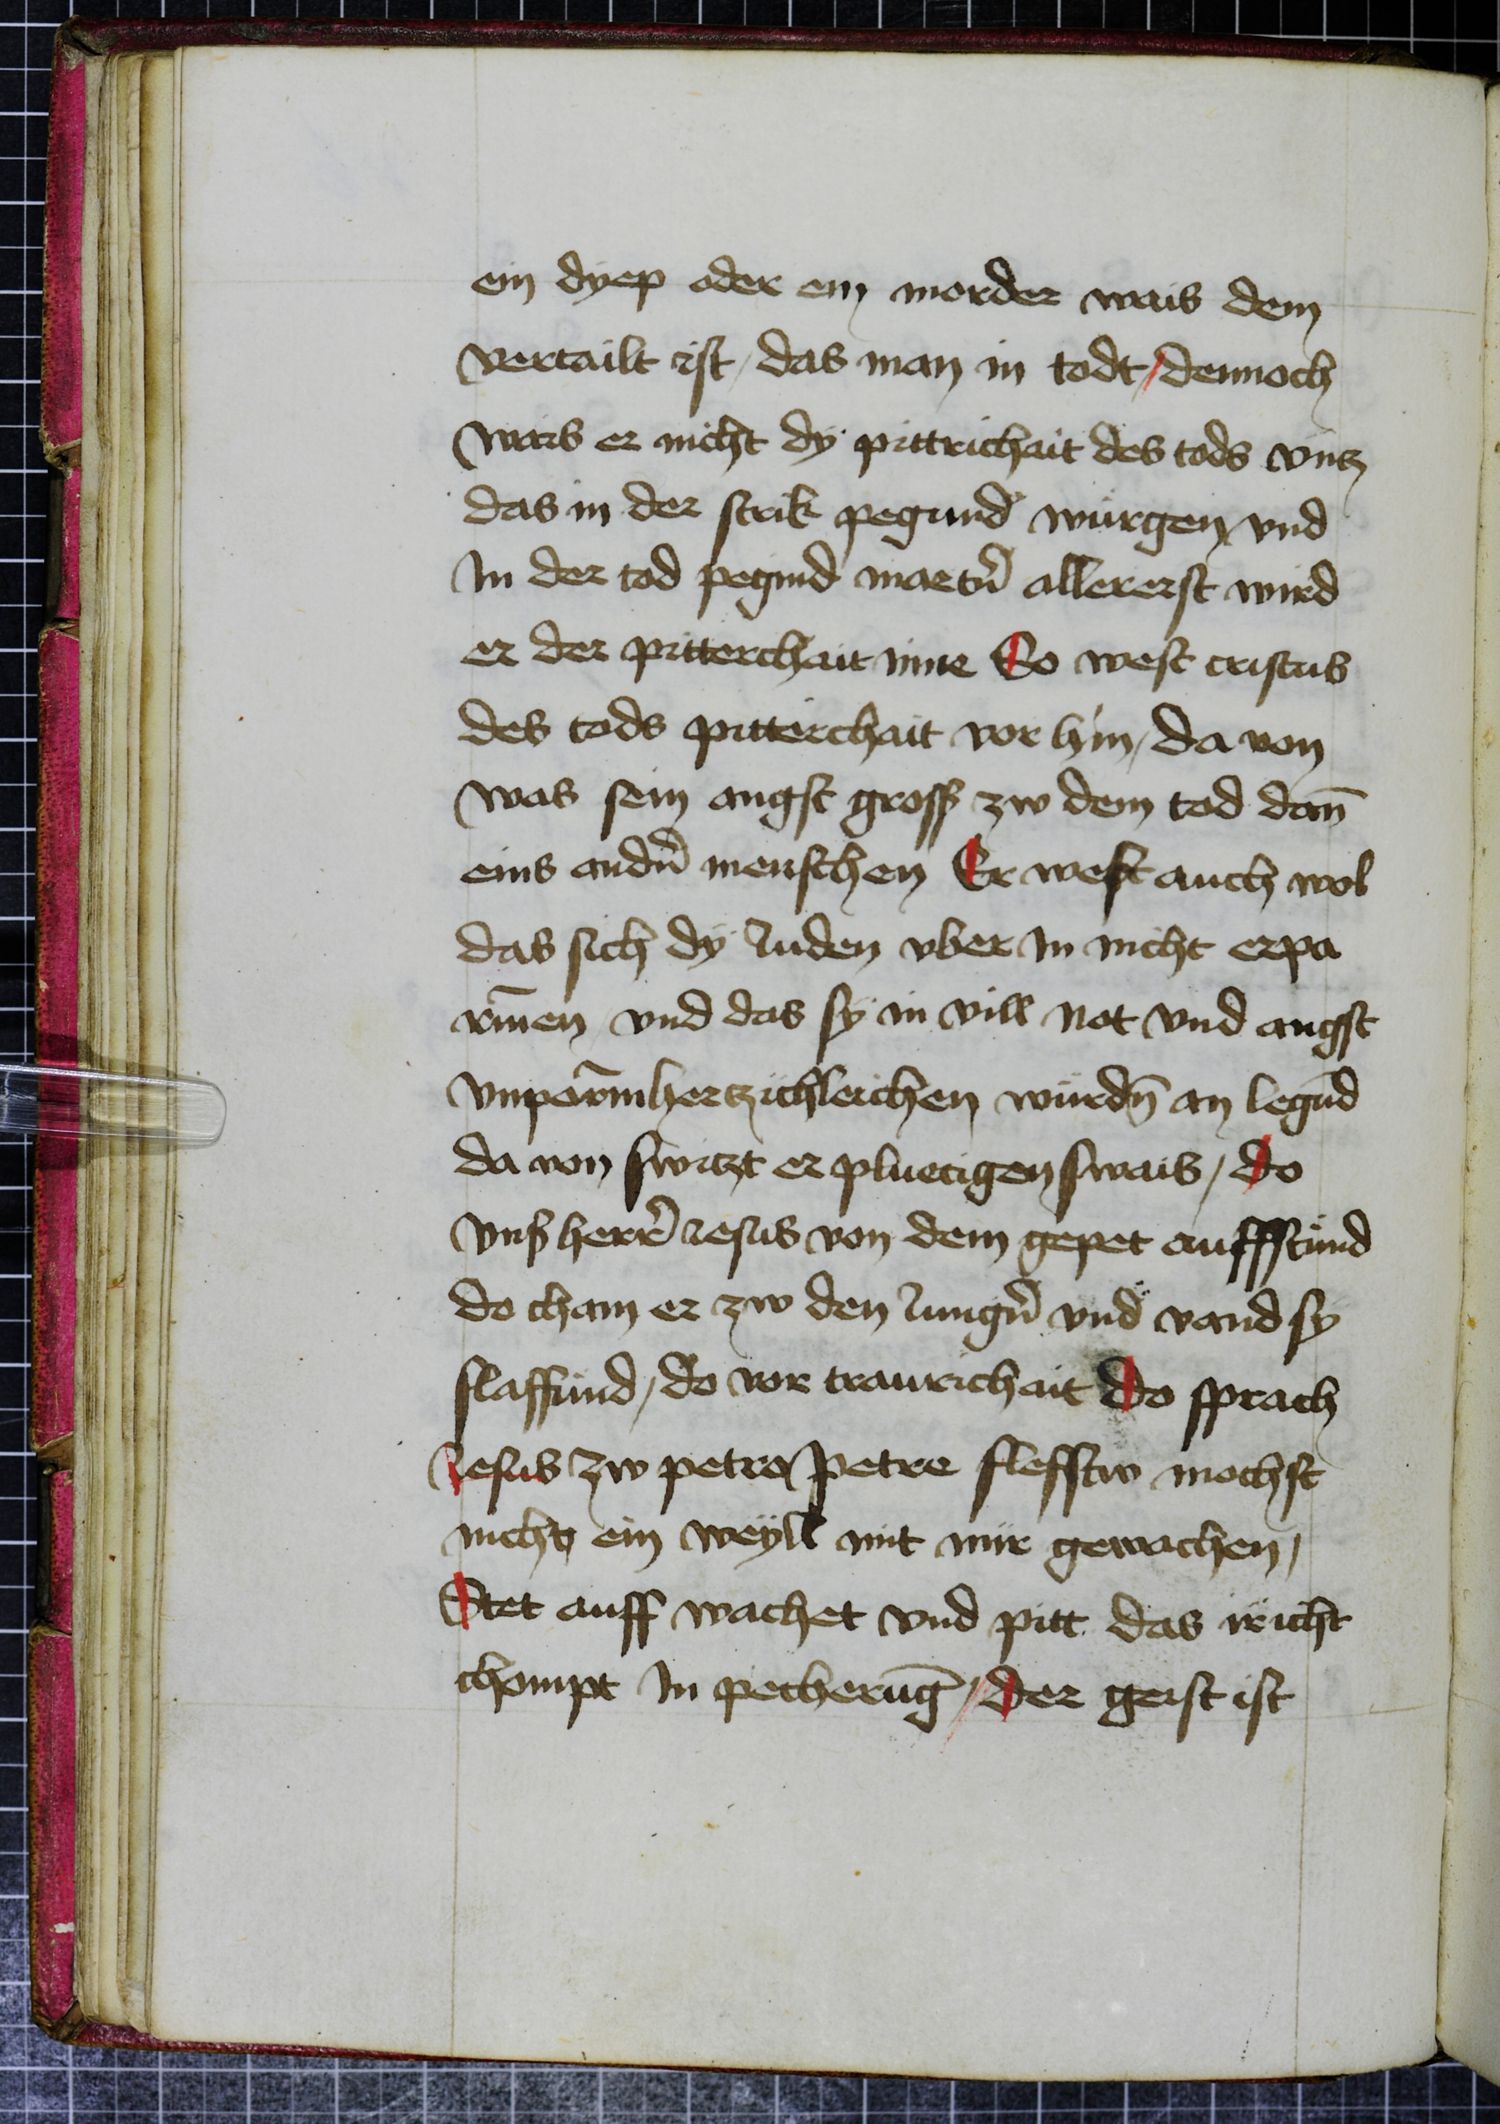 ein dyep oder ein morder wais dem
vertailt ist / das man in todt / dennoch
wais er nicht dy pittrichait des tods vntz
das in der strik pegund wurgen vnd
In der tod pegind martn̄ allererst wird
er der pitterchait inne So west cristus
des tods pitterchait vor hin / da von
was sein angst gross zw dem tod dan̄
eins andn̄ menschen Er west auch wol
das sich dy Juden vber in nicht erpa
rm̄en / vnd das sy in vill not vnd angst
vnparm̄hertzichleichen wurdn̄ an legūd
da von switzt er pluetigen swais / do
vnß herr̄ Jesus von dem gepet auffstund
do cham er zw den Jungn̄ vnd vand sy
slaffund / do vor traurichait Do sprach
Jesus zw petro / petre slefstw mochst
nicht ein weyll mit mir gewachen /
Stet auff wachet vnd pitt das ir icht
chompt In pecherūg / der geist ist